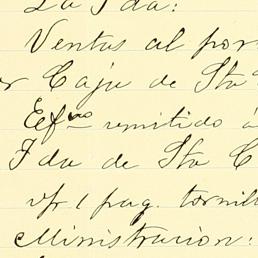 La Fda:
Ventas al por
Caja de Sta
Efvos remitido á
Fda de Sta C
vr/ 1 pag. tornill
Ministracion: